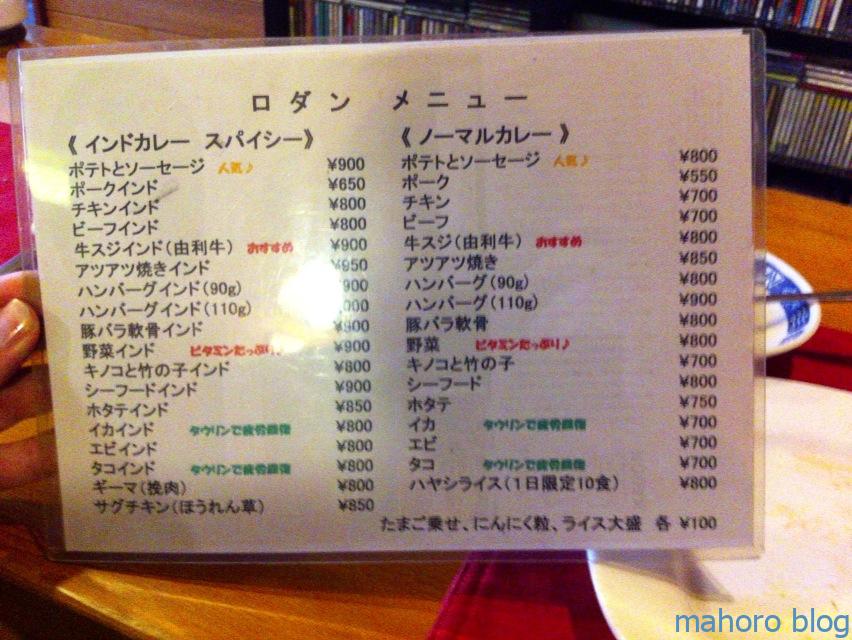 ロダン メニュー
《インドカレー スパイシー》
ポテトとソーセージ 人気♪ ¥900
ポークインド ¥650
チキンインド ¥800
ビーフインド ¥800
牛スジインド(由利牛) おすすめ ¥900
アツアツ焼きインド ¥950
ハンバーグインド(90g)
ハンバーグインド(110g)
豚バラ軟骨インド ¥900
野菜インド ビタミンたっぷり♪ ¥900
キノコと竹の子インド ¥800
シーフードインド ¥900
ホタテインド ¥850
イカインド タウリンで疲労回復 ¥800
エビインド ¥800
タコインド タウリンで疲労回復 ¥800
ギーマ(挽肉) ¥800
サグチキン(ほうれん草) ¥850
《ノーマルカレー》
ポテトとソーセージ 人気♪ ¥800
ポーク ¥550
チキン ¥700
ビーフ ¥700
牛スジ(由利牛) おすすめ ¥800
アツアツ焼き ¥850
ハンバーグ(90g) ¥800
ハンバーグ(110g) ¥900
豚バラ軟骨 ¥800
野菜 ビタミンたっぷり♪ ¥800
キノコと竹の子 ¥700
シーフード ¥800
ホタテ ¥750
イカ タウリンで疲労回復 ¥700
エビ ¥700
タコ タウリンで疲労回復 ¥700
ハヤシライス(1日限定10食) ¥800
たまご乗せ、にんにく粒、ライス大盛 各 ¥100
mahoro blog